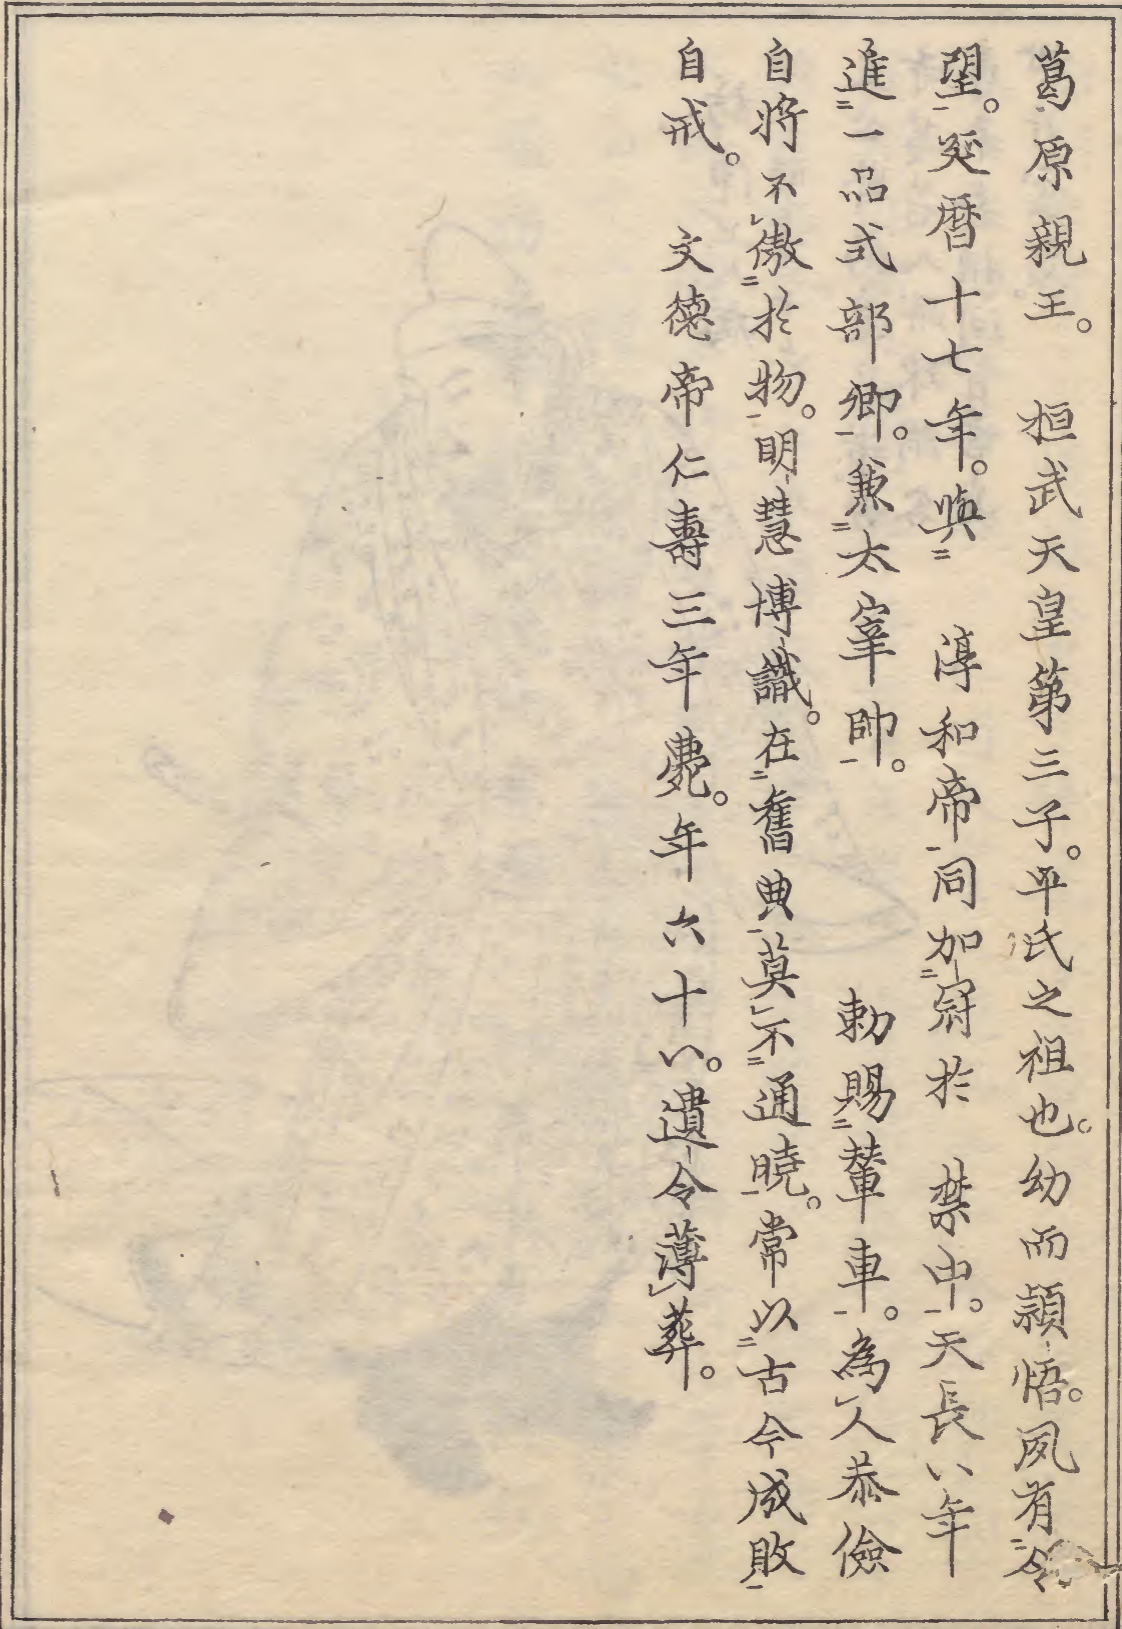 葛原親王。 桓武天皇第三子。平氏之祖也。幼而穎悟。夙有令
望。延暦十七年。與 淳和帝同加冠於 禁中。天長八年
進一品式部卿。兼太宰帥。 勅賜輦車。為人恭儉
自將不傲於物。明慧博識。在舊典莫不通曉。常以古今成敗
自戒。 文徳帝仁壽三年薨。年六十八。遺令薄葬。